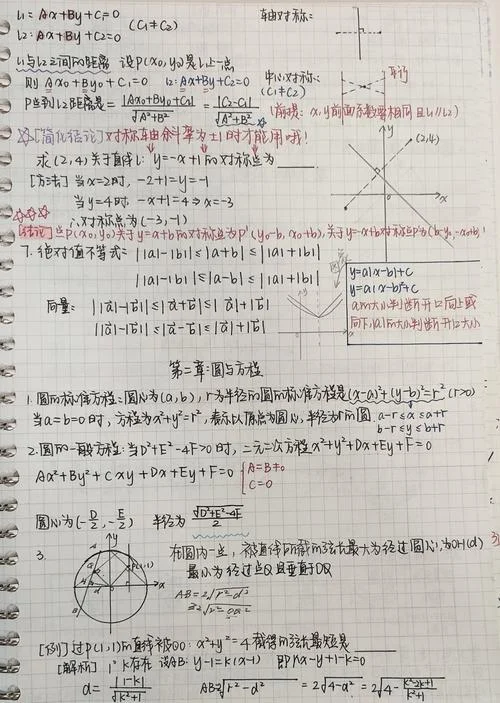 L1 = Ax+By+C1=0
L2: Ax+By+C2=0 (C1≠C2)
车由对称:
L1与L2之间的距离 设P(x0,y0)是L1上一点
则 Ax0+By0+C1=0 L2: Ax+By+C2=0
中心对称: (C1≠C2)
平行
P点到L2距离是 = |Ax0+By0+C2|/√A²+B² = |C2-C1|/√A²+B²
(前提: x,y前面系数要相同且L1//L2)
[简化结论] 对称轴斜率为±1时才能用哦!
求(2,4)关于直线l: y=-x+1的对称点为____
[方法] 当x=2时, -2+1=y=-1
当y=4时, -x+1=4⇒x=-3
∴对称点为(-3,-1)
y
(2,4)
x
[结论] 点P(x0,y0)关于y=x+b的对称点为P'(y0-b, x0+b), 关于y=-x+b对称点P'为(b-y0, -x0+b)
7. 绝对值不等式= ||a|-|b|| ≤|a+b| ≤ |a|+|b|
||a|-|b|| ≤|a-b| ≤ |a|+|b|
向量: ||a⃗|-|b⃗|| ≤ |a⃗+b⃗| ≤ |a⃗|+|b⃗|
||a⃗|-|b⃗|| ≤ |a⃗-b⃗| ≤ |a⃗|+|b⃗|
y=a|x-b|+c
y=a(x-b)²+c
a的大小判断开口向上或
向下, |a|的大小判断开口大小
第二章:圆与方程
1. 圆的标准方程=圆心为(a,b), r为半径的圆的标准方程是(x-a)²+(y-b)²=r² (r>0)
当a=b=0时, 方程为x²+y²=r², 表示以原点为圆心, 半径为r的圆.
a-r≤x≤a+r
b-r≤y≤b+r
2. 圆的一般方程: 当D²+E²-4F>0时, 二元二次方程x²+y²+Dx+Ey+F=0
Ax²+By²+Cxy+Dx+Ey+F=0 {A=B≠0
C=0
圆心为(-D/2, -E/2) 半径为 √D²+E²-4F/2
3.
y
P(1,1)
x
A
B
在圆内一点, 被直线所截的弦长最大为经过圆心,
最小为经过点Q且垂直OQ
AB=2√r²-d²
=2√r²-OQ²
[例] 过P(1,1)的直线被⊙O: x²+y²=4截得的弦长最短是____
[解析] 1° k存在 设AB: y-1=k(x-1) 即kx-y+1-k=0
d= |1-k|/√k²+1 AB=2√r²-d² = 2√4-d² = 2√4-k²-2k+1/k²+1